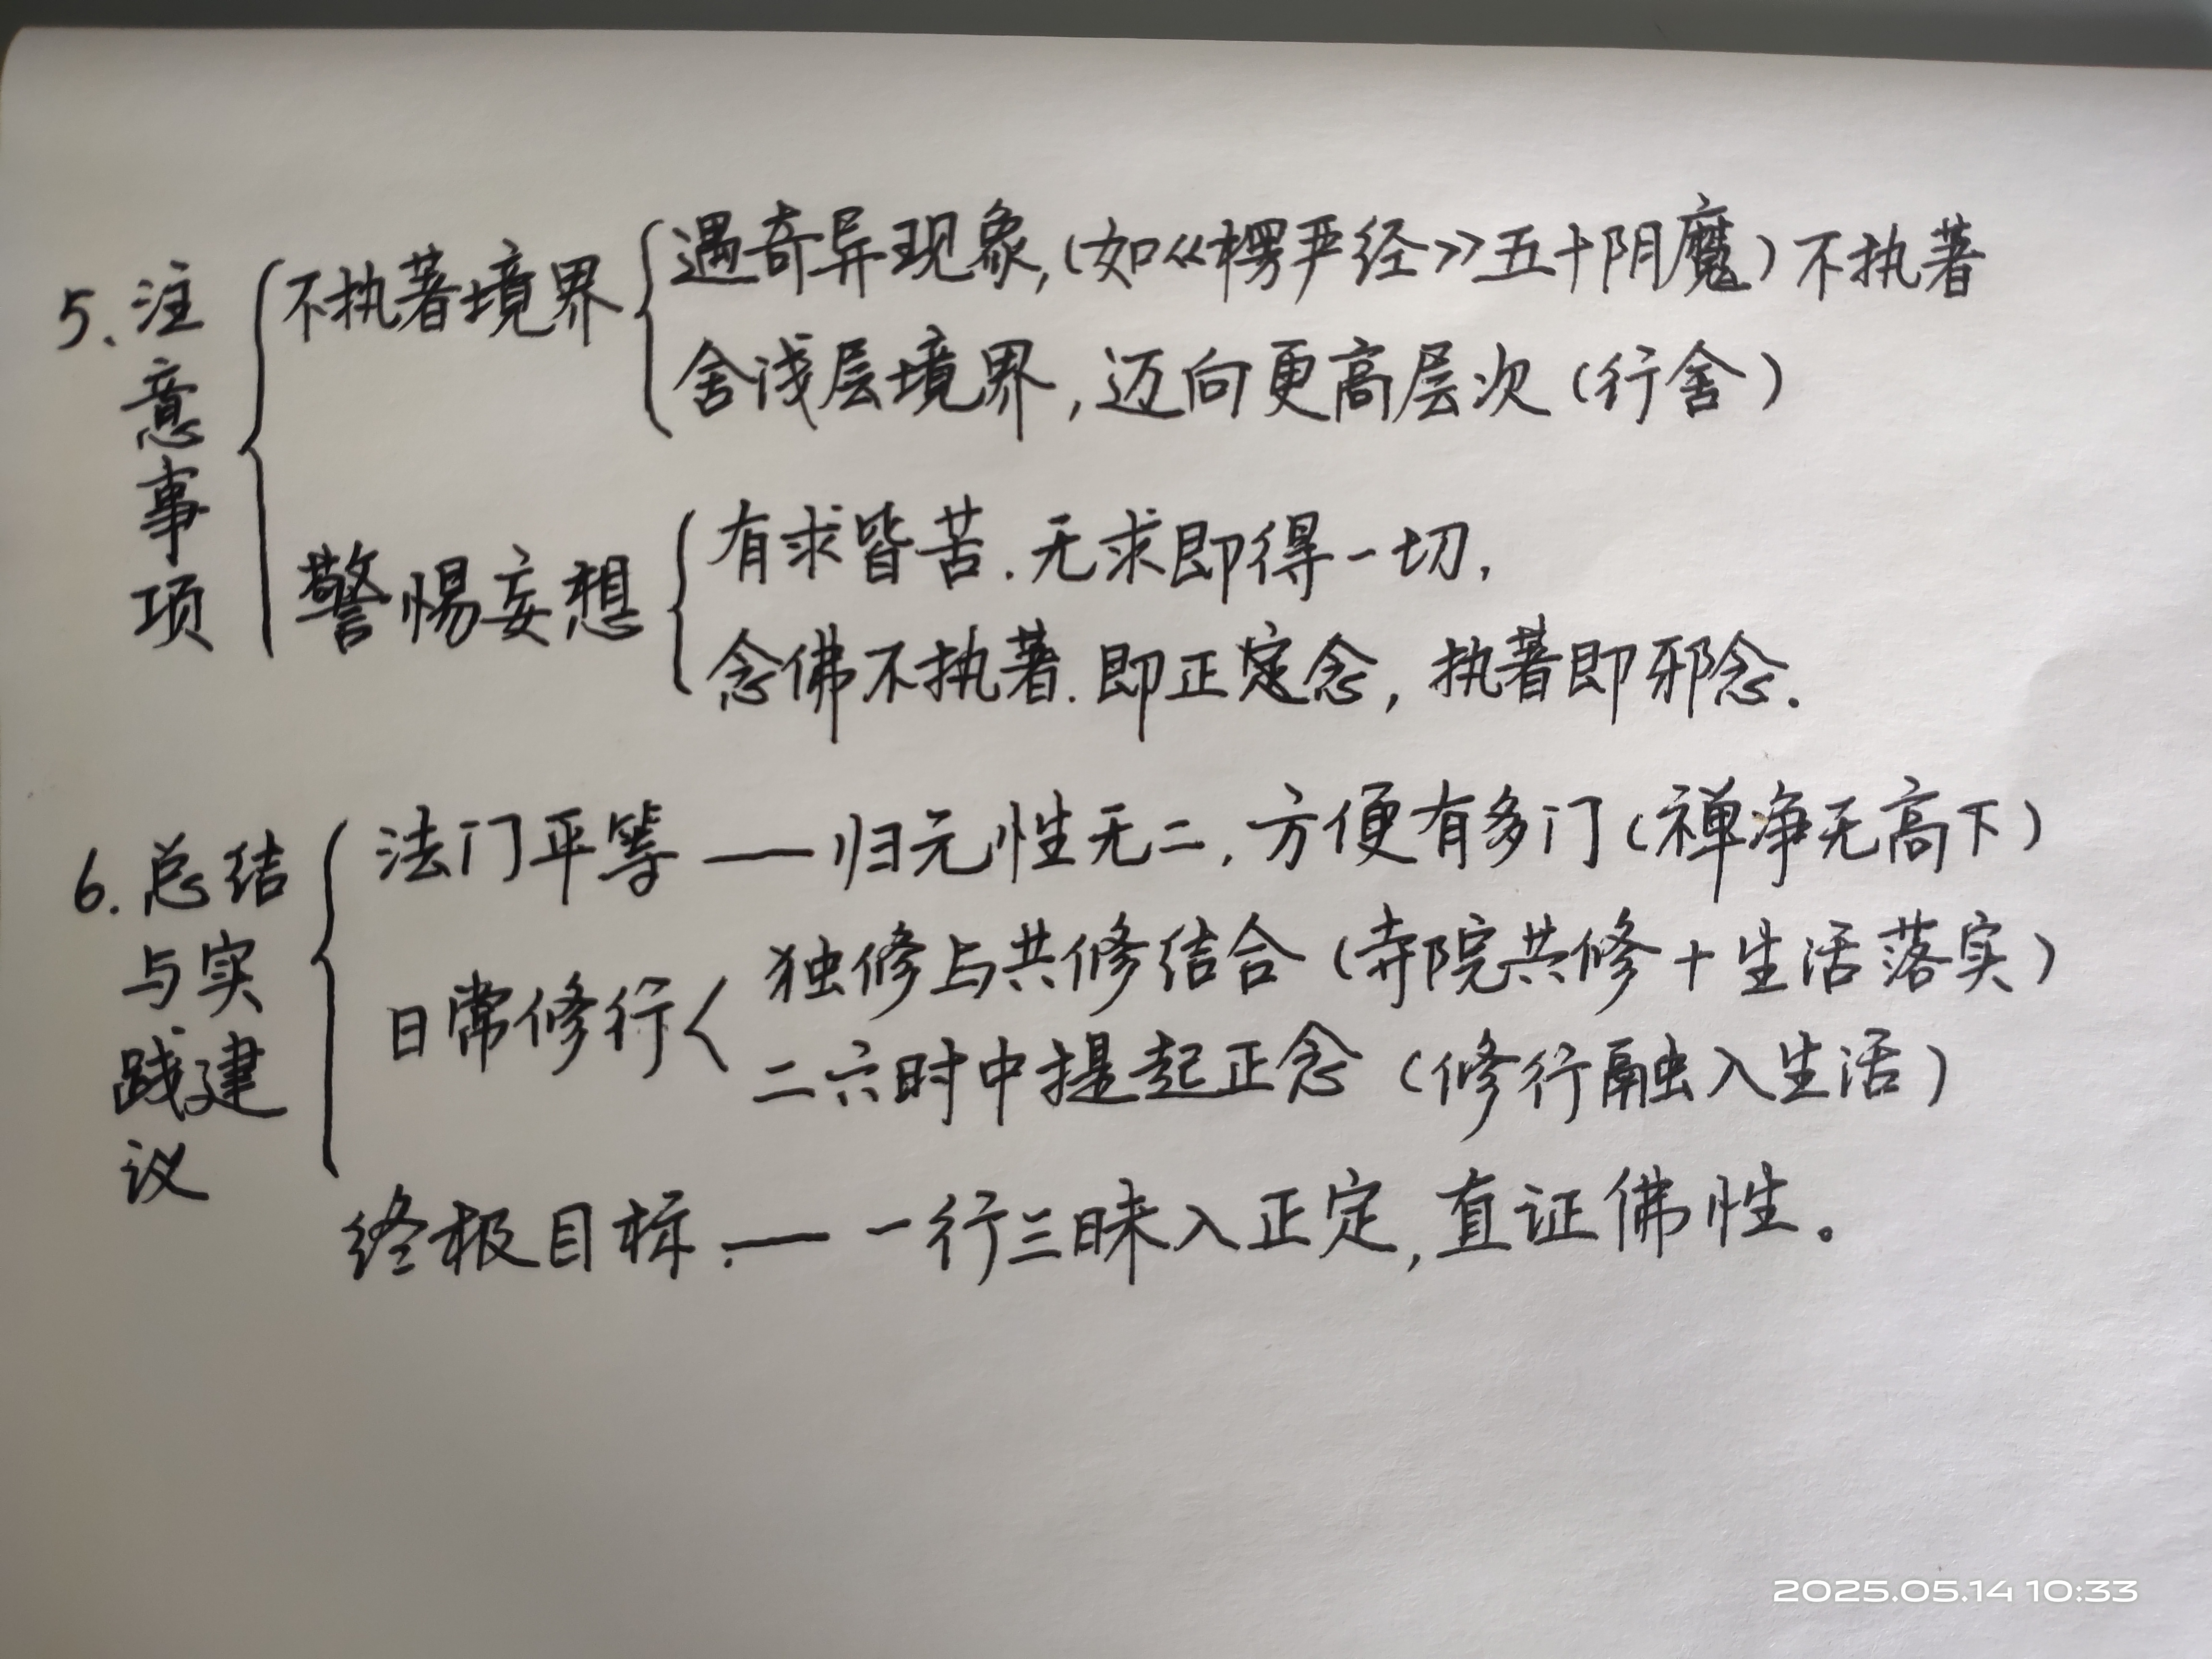 5、注意事项
不执著境界
遇奇异现象,(如《楞严经》五十阴魔)不执著
舍浅层境界,迈向更高层次(行舍)
警惕妄想
有求皆苦.无求即得一切,
念佛不执著.即正定念,执著即邪念.
6.总结与实践建议
法门平等——归元性无二,方便有多门(禅净无高下)
日常修行
独修与共修结合(寺院共修+生活落实)
二六时中提起正念(修行融入生活)
终极目标.——一行三昧入正定,直证佛性。
2025.05.14 10:33